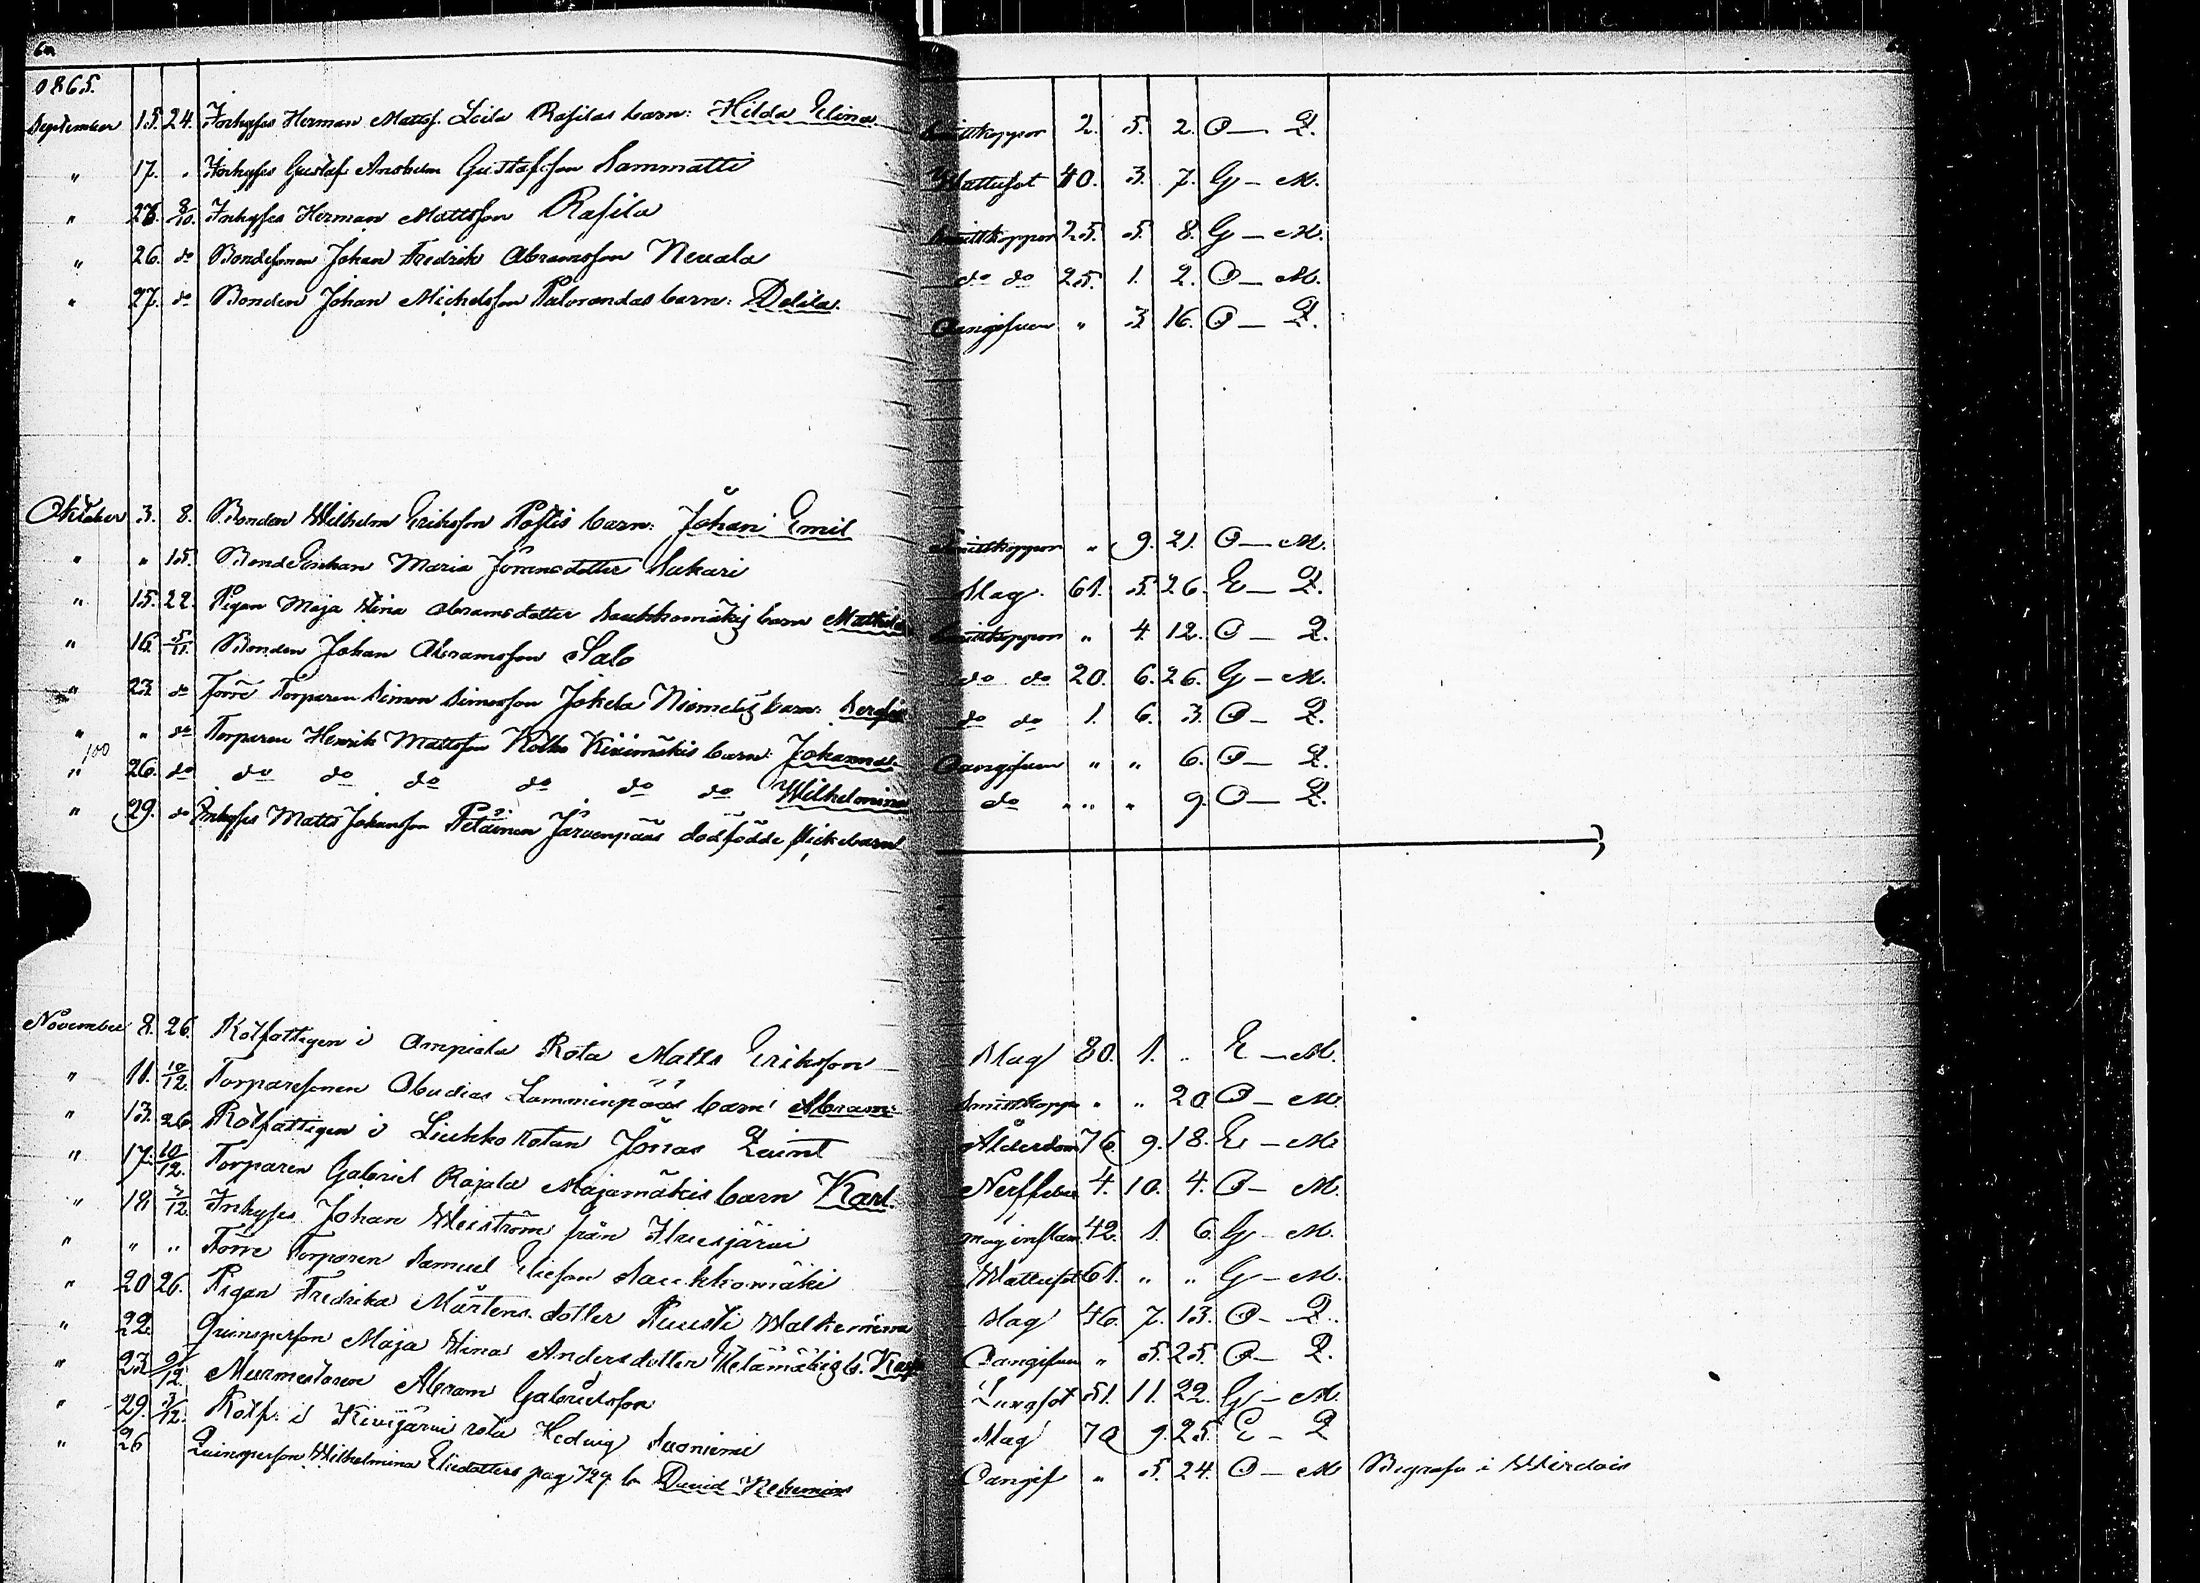 60
1865.
September 15. 24. Inhyses Herman Mattsf. Leila Rasilas barn: Hilda Elina Smittkoppor 2. 5. 2. O — Q.
" 17. " Inhyses Gustaf Anshelm Gustafsson Sammatti Wattusot 40. 3. 7. G — M.
" 23. 8/10. Inhyses Herman Mattsson Rasila Smittkoppor 25. 5. 8. G — M.
" 26. do Bondesonen Johan Fredrik Abramsson Neuala do do 25. 1. 2. O — M.
" 27. do Bonden Johan Michelsson Palorandas barn: Delila. Oangifven " 3. 16. O — Q.
Oktober 3. 8. Bonden Wilhelm Eriksson Postis barn: Johan Emil Smittkoppor " 9. 21. O — M.
" " 15. BondeEnkan Maria Jöransdotter Sakari Slag 61. 5. 26. E — Q.
" 15. 22. Pigan Maja Stina Abramsdotter Saukkomäkis barn Mathilda Smittkoppor " 4. 12. O — Q.
" 16. 5/11. Bonden Johan Abramsson Salo do do 20. 6. 26. G — M.
" 23. do Förre Torparen Simon Simonsson Jokela Niemeläs barn: Serafia do do 1. 6. 3. O — Q.
" " do Torparen Henrik Mattsson Kotka Kivimäkis barn: Johanna Oangifven " " 6. O — Q.
100
" 26. do do do do do do do Wilhelmina do " " 9. O — Q.
" 29. do Inhyses Matts Johansson Petäinen Järvenpääs dödfödde flickebarn
November 8. 26. Rotfattigen i Ampiala Rota Matts Eriksson Slag 80. 1. " E — M.
" 11. 10/12. Torparesonen Obadias Lamminpääs barn: Abram Smittkoppor " " 20 O — M.
" 13. 26. Rotfattigen i Liukko rotan Jonas Quint Ålderdom 76. 9. 18. E — M.
" 17. 10/12. Torparen Gabriel Rajala Majamäkis barn Karl. Nerffeber 4. 10. 4. O — M.
" 18. 3/12 Inhyses Johan Weiström från Ilvesjärvi mag inflam. 42. 1. 6. G — M.
" " " Förre Torparen Samuel Eliefson Saukkomäki Wattusot 61. " " G — M.
" 20 26. Pigan Fredrika Mårtensdotter Ruusti Slag 46. 7. 13. O — Q.
" 22. Quinsperson Maja Stina Andersdotter Oangifven " 5. 25. O — Q.
" 23. Murmestaren Abram Gabrielsson Lungsot 51. 11. 22. G — M.
" 29. 3/12. Rotf. i Kivijärvi rota Hedvig Suoniemi Slag 70 9. 25. E — Q
" 26 Quinsperson Wilhelmina Eliedotters pag 729. b. David Nehemias Oangif " 5. 24. O — M Begrafn i Wirdois